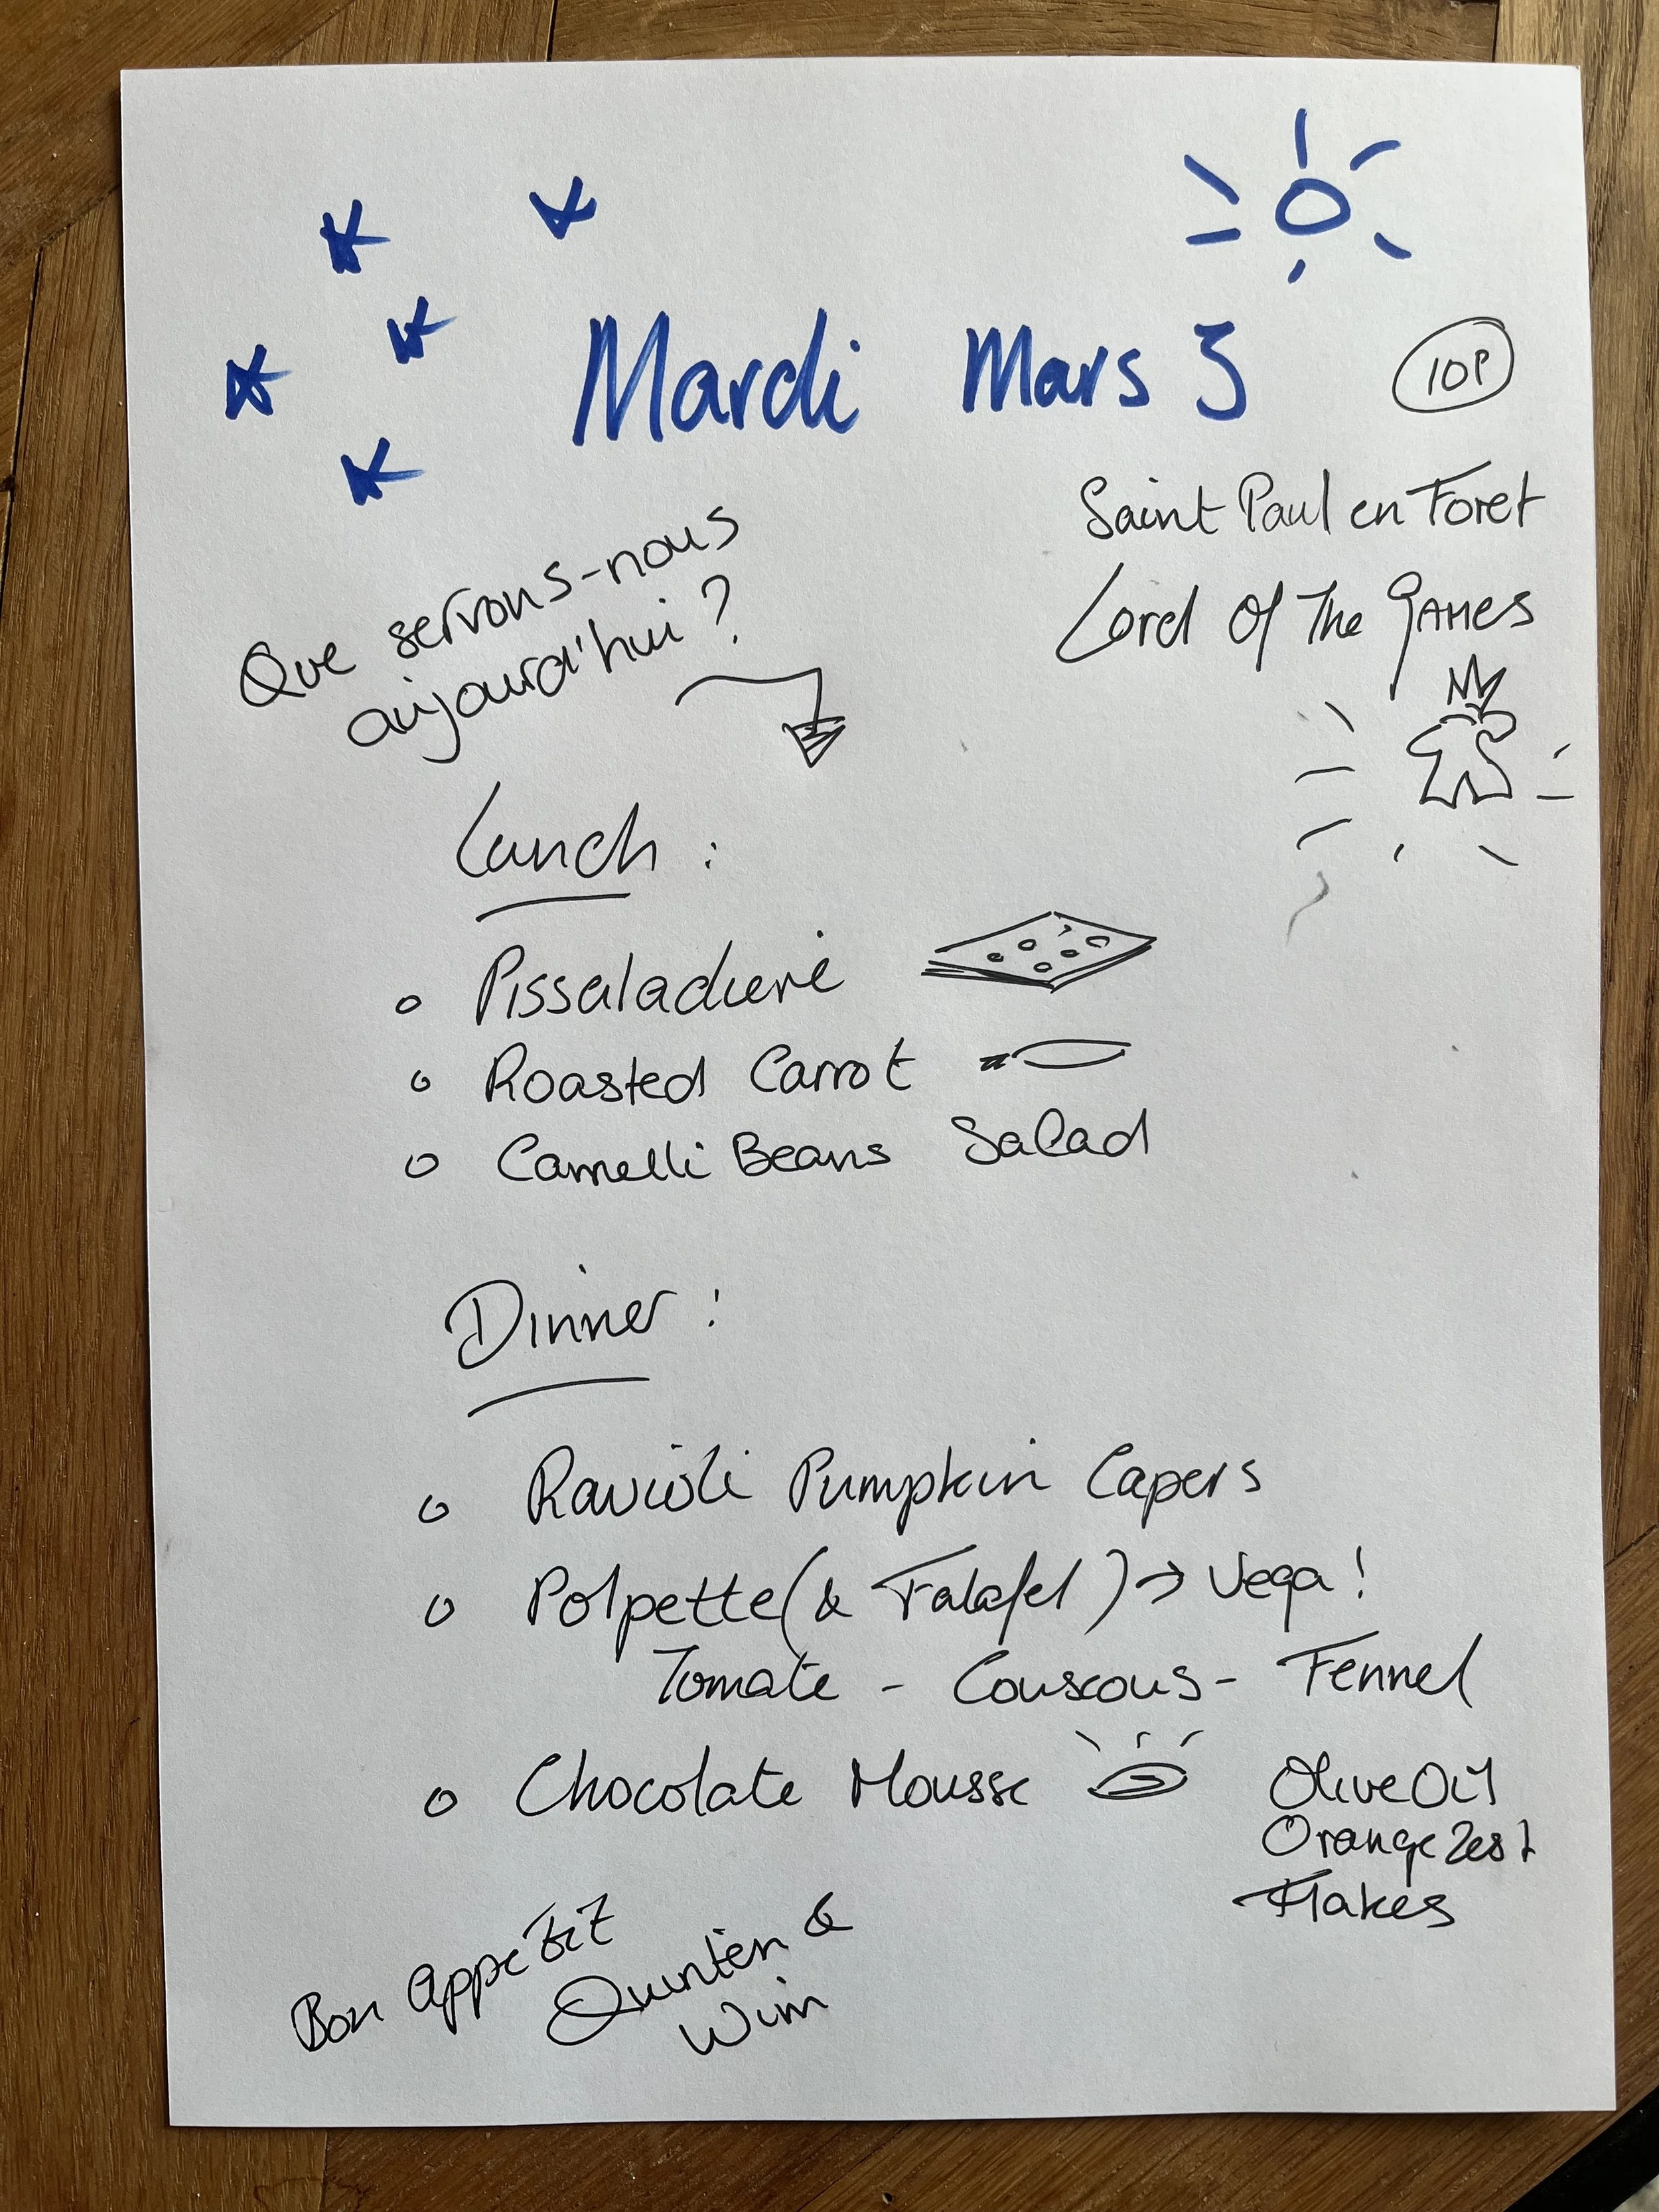 Mardi Mars 3
10P
Saint Paul en Foret
Lord Of The GAMES
Que servons-nous
aujourd'hui ?
Lunch :
Pissaladiere
Roasted Carrot
Camelli Beans Salad
Dinner :
Ravioli Pumpkin Capers
Polpette (& Falafel) → Vega !
Tomate - Couscous - Fennel
Chocolate Mousse
Olive Oil
Orange Zest
Flakes
Bon Appetit
Quinten &
Wim